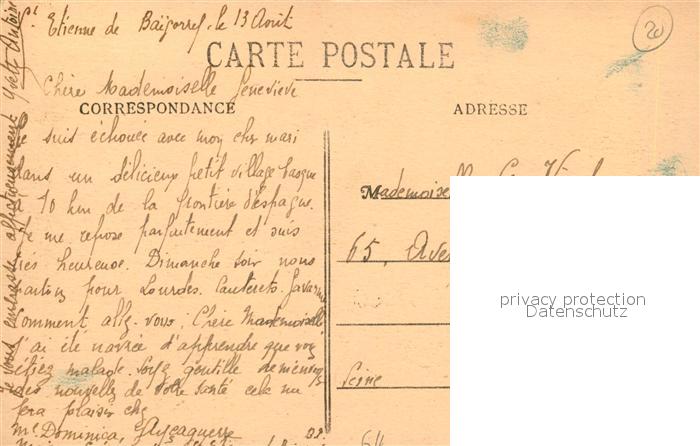 St Etienne de Baïgorry. le 13 Août
20
CARTE POSTALE
Chère Mademoiselle Geneviève
CORRESPONDANCE
ADRESSE
Je suis échouée avec mon cher mari
dans un délicieux petit village basque
à 10 km de la frontière d'espagne.
Je me repose parfaitement et suis
très heureuse. Dimanche soir nous
partons pour Lourdes. Cauterets. Gavarnie
Comment allez-vous, Chère Mademoiselle
J'ai été navrée d'apprendre que vous
étiez malade. Soyez gentille de
des nouvelles de votre santé cela me
fera plaisir chez
Me Dominica,
Je vous embrasse affectueusement Yvette
Mademoise
65, Ave
Seine
64
privacy protection
Datenschutz